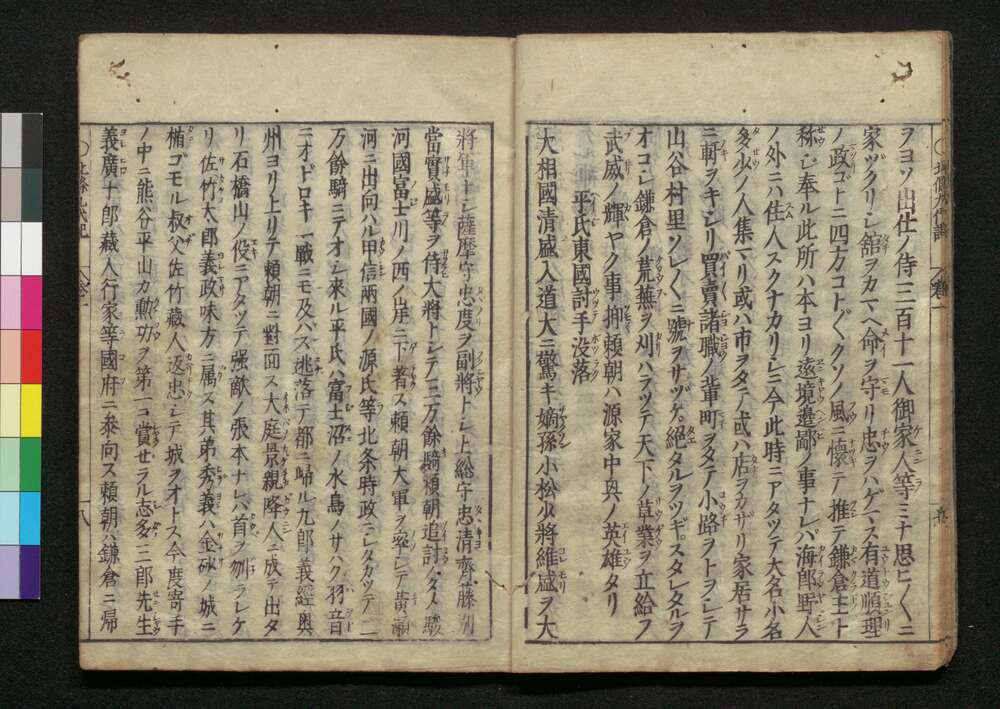 ヲヨソ出仕ノ侍三百十一人御家人等ミナ思ヒ〳〵ニ
家ヅクリシ舘ヲカマヘ命ヲ守リ忠ヲハゲマス有道順理
ノ政コトニ四方コト〴〵クソノ風ニ懐テ推テ鎌倉主ト
称シ奉ル此所ハ本ヨリ遠境邊鄙ノ事ナレバ海郎野人
ノ外ニハ住人スクナカリシニ今此時ニアタツテ大名小名
多少ノ人集マリ或ハ市ヲタテ或ハ店ヲカザリ家居サラ
ニ軒ヲキシリ買賣諸職ノ輩町ヲタテ小路ヲトヲシテ
山谷村里ソレ〳〵ニ號ヲサツケ絶タルヲツギスタレタルヲ
オコシ鎌倉ノ荒蕪ヲ刈ハラツテ天下ノ草業ヲ立給フ
武威ノ輝ヤク事抑頼朝ハ源家中興ノ英雄タリ
平氏東國討手没落
大相國清盛入道大ニ驚キ嫡孫小松少將維盛ヲ大
將軍トシ薩摩守忠度ヲ副將トシ上総守忠清齋藤別
當實盛等ヲ侍大將トシテ三万餘騎頼朝追討ノタメ駿
河國冨士川ノ西ノ岸ニ下著ス頼朝大軍ヲ率シテ黄瀬
河ニ出向ハル甲信兩國ノ源氏等北条時政ニシタカツテ二
万餘騎ニテオシ來ル平氏ハ富士沼ノ水鳥ノサハク羽音
ニオドロキ一戰ニモ及バズ逃落テ都ニ歸ル九郎義經奥
州ヨリ上リテ頼朝ニ對面ス大庭景親降人ニ成テ出タ
リ石橋山ノ役ニアタツテ強敵ノ張本ナレバ首ヲ刎ラレケ
リ佐竹大郎義政味方ニ属ス其弟秀義ハ金砂ノ城ニ
楯ゴモル叔父佐竹藏人返忠シテ城ヲオトス今度寄手
ノ中ニ熊谷平山カ勲功ヲ第一ニ賞セラル志多三郎先生
義廣十郎藏人行家等國府ニ參向ス頼朝ハ鎌倉ニ歸